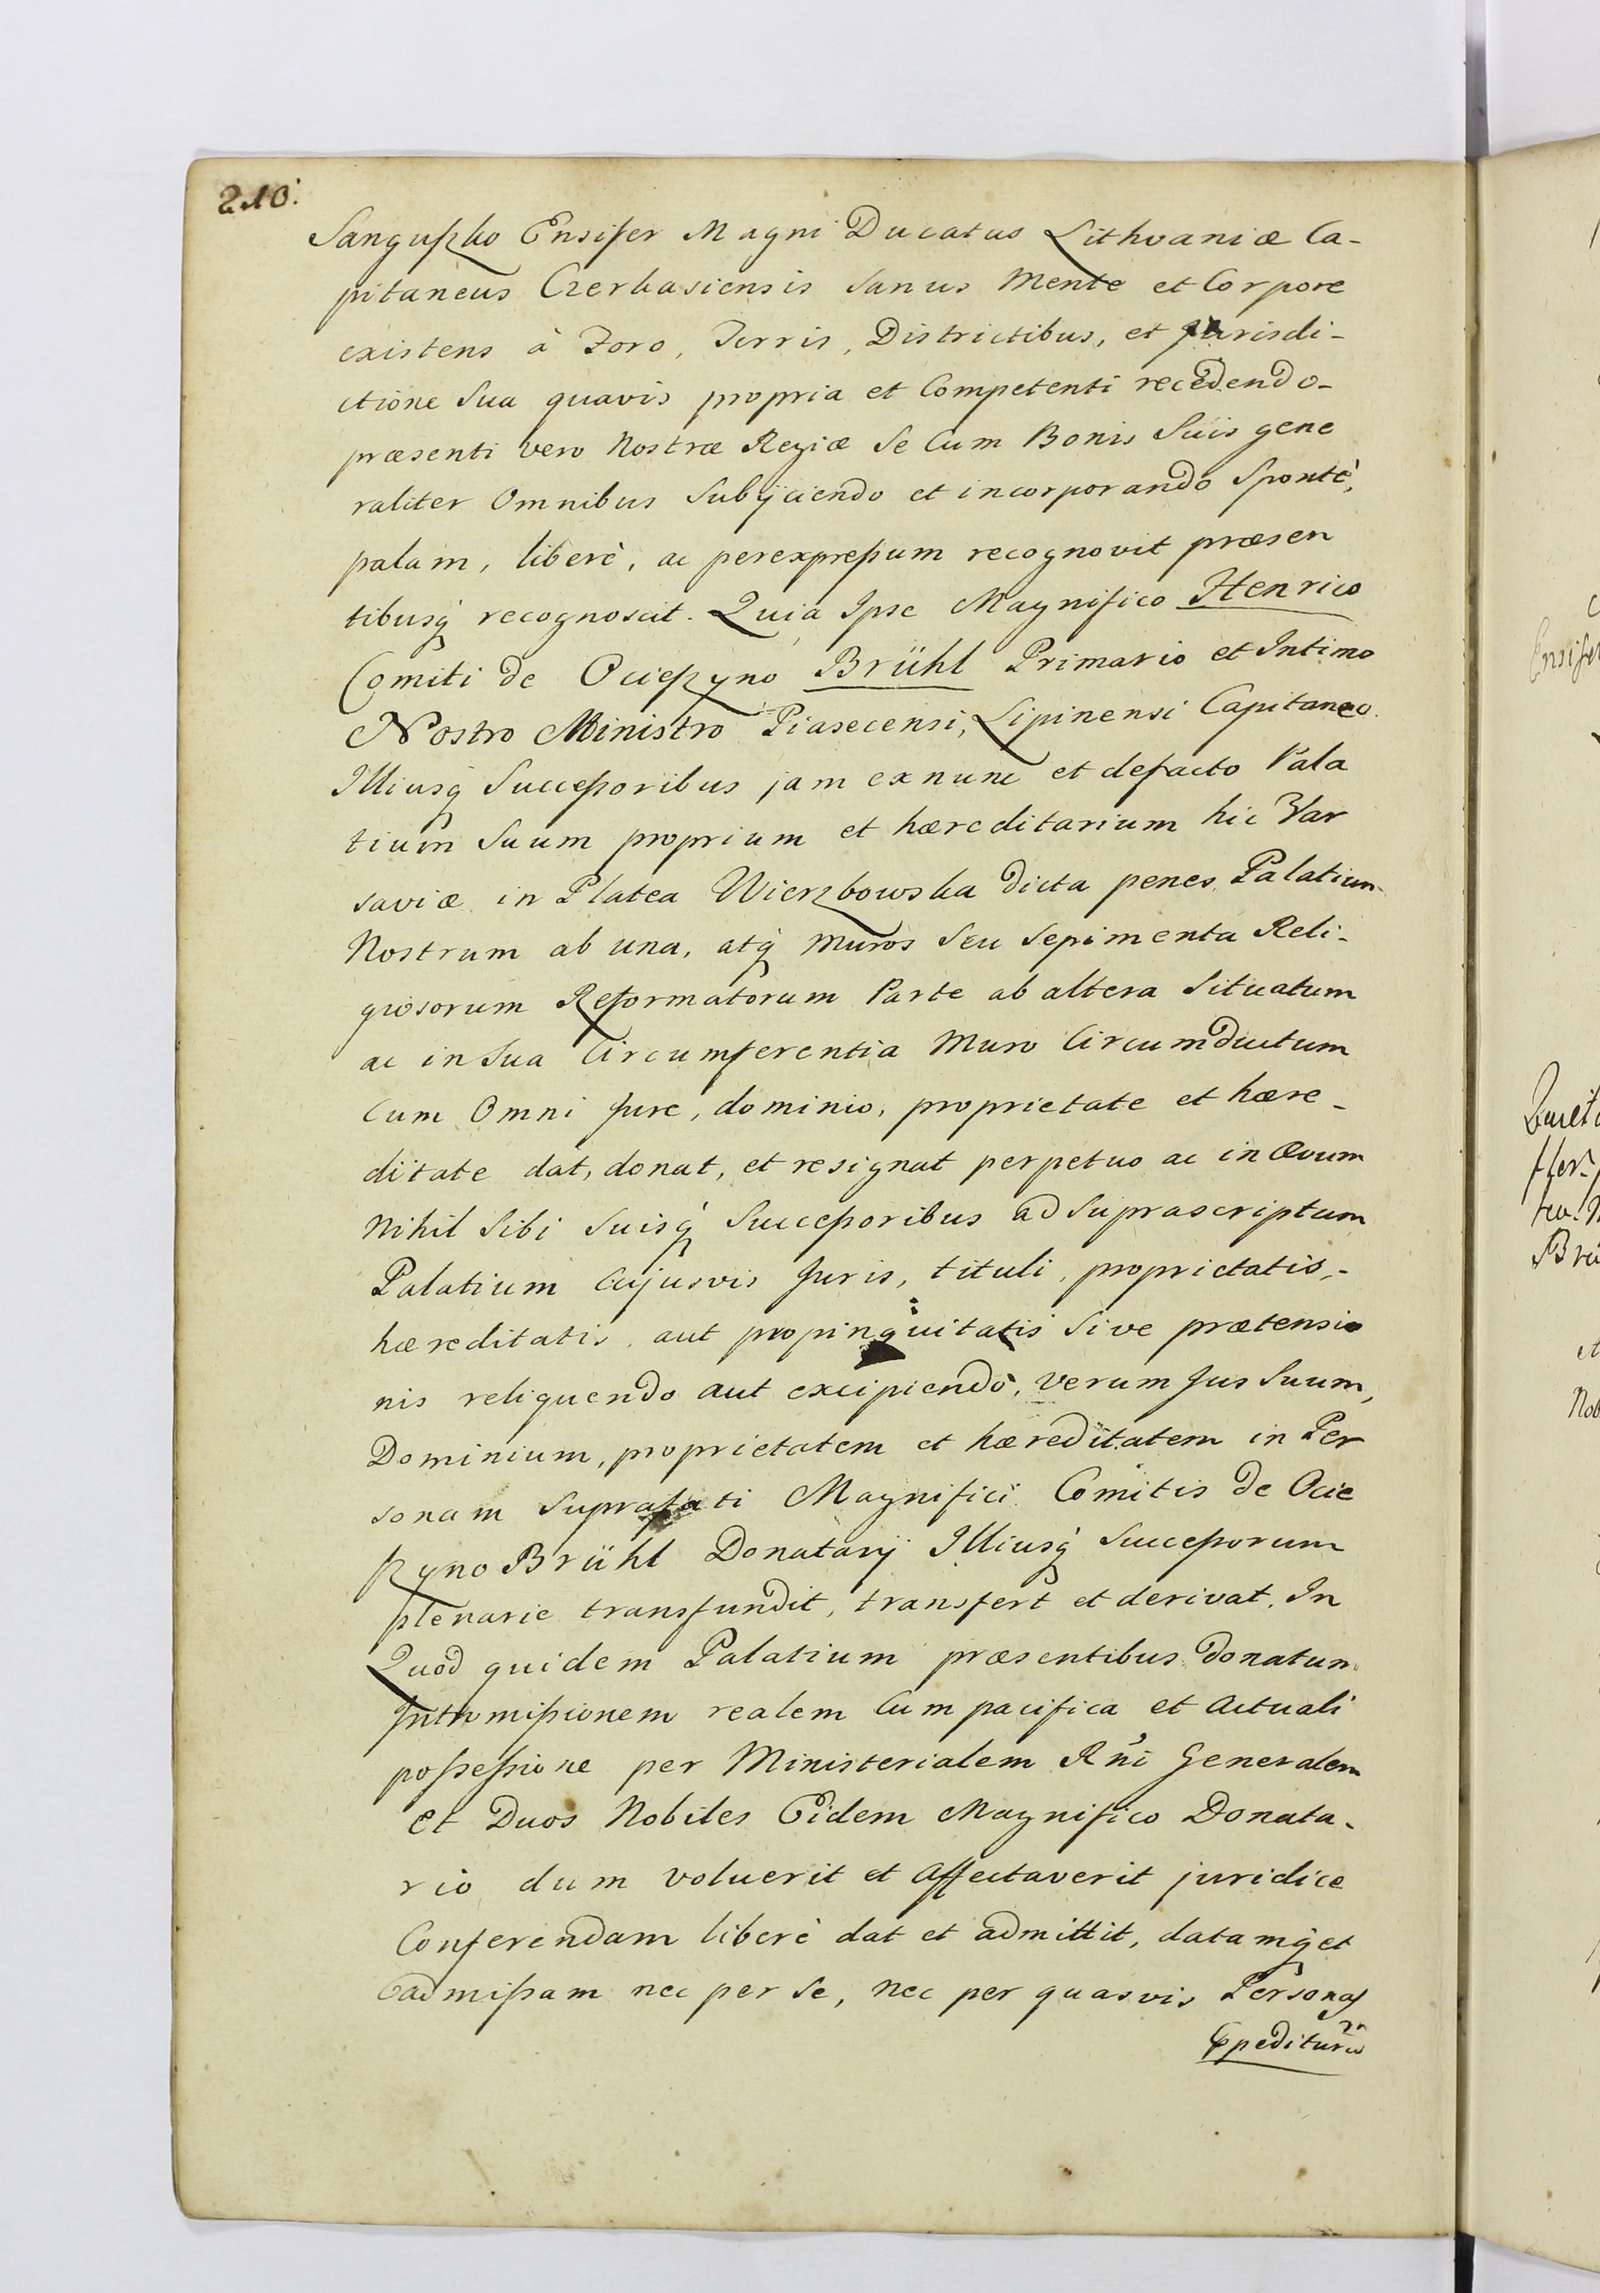 210.
Sanguszko Ensifer Magni Ducatus Lithvaniæ Ca-
pitaneus Czerkasiensis Sanus Mente et Corpore
existens à Foro, Terris, Districtibus, et Jurisdi-
ctione Sua quavis propria et Competenti recedendo-
præsenti vero Nostræ Regiæ Se Cum Bonis Suis gene
raliter Omnibus Subijciendo et incorporando Spontè,
palam, liberè, ac perexpreßum recognovit præsen
tibusq́ recognoscit. Quia Ipse Magnifico Henrico
Comiti de Ocieszyno Brühl Primario et Intimo
Nostro Ministro Piasecensi, Lipinensi Capitaneo.
Illiusq́ Succeßoribus jam exnunc et defacto Pala
tium Suum proprium et hæreditarium hic Var
saviæ in Platea Wierzbowska dicta penes Palatium
Nostrum ab una, atq́ Muros Seu Sepimenta Reli-
giosorum Reformatorum Parte ab altera Situatum
ac in Sua Circumferentia Muro Circumductum
Cum Omni Jure, dominio, proprietate et hære-
ditate dat, donat, et resignat perpetuo ac in ævum
Nihil Sibi Suisq́ Succeßoribus ad Suprascriptum
Palatium Cujusvis Juris, tituli, proprietatis,-
hæreditatis, aut propinquitatis Sive prætensio
nis reliquendo aut excipiendo, Verum Jus Suum,
Dominium, proprietatem et hæreditatem in Per
sonam Suprafati Magnifici Comitis de Ocie
szyno Brühl Donatarij Illiusq́ Succeßorum
plenarie transfundit, transfert et derivat. In
Quod quidem Palatium præsentibus donatum
Intromißionem realem Cum pacifica et Actuali
poßeßione per Ministerialem Rñi Generalem
et Duos Nobiles Eidem Magnifico Donata-
rio dum voluerit et affectaverit juridice
Conferendam liberè dat et admittit, datamq́ et
admißam nec per Se, nec per quasvis Personas